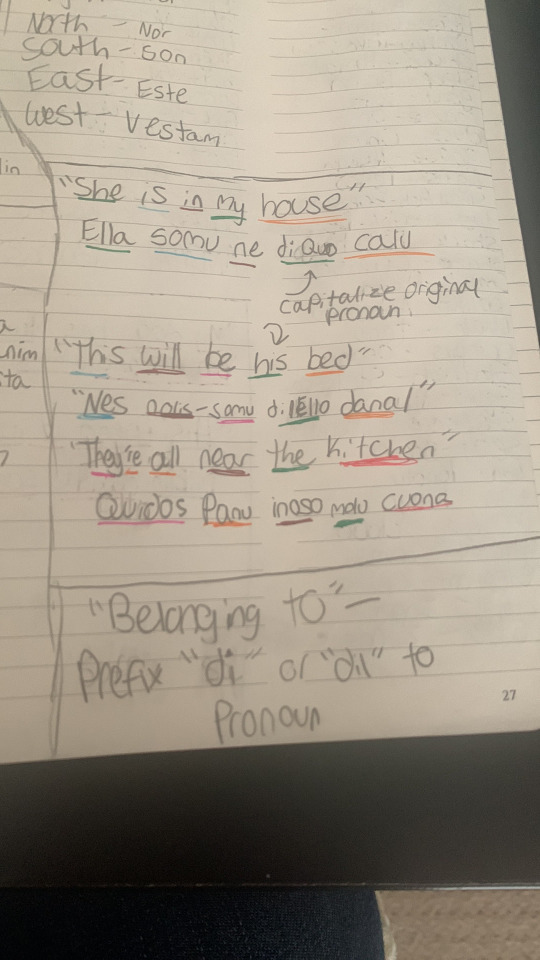 North - Nor
South - Son
East - Este
West - Vestam
lin
"She is in my house"
Ella somu ne diQuo calu
capitalize original
pronoun
a
nim
"This will be his bed"
ita
"Nes oois-somu dilEllo danal"
"They're all near the kitchen"
Quidos Panu inoso malu cuona
"Belonging to" -
Prefix "di" or "dil" to
Pronoun
27